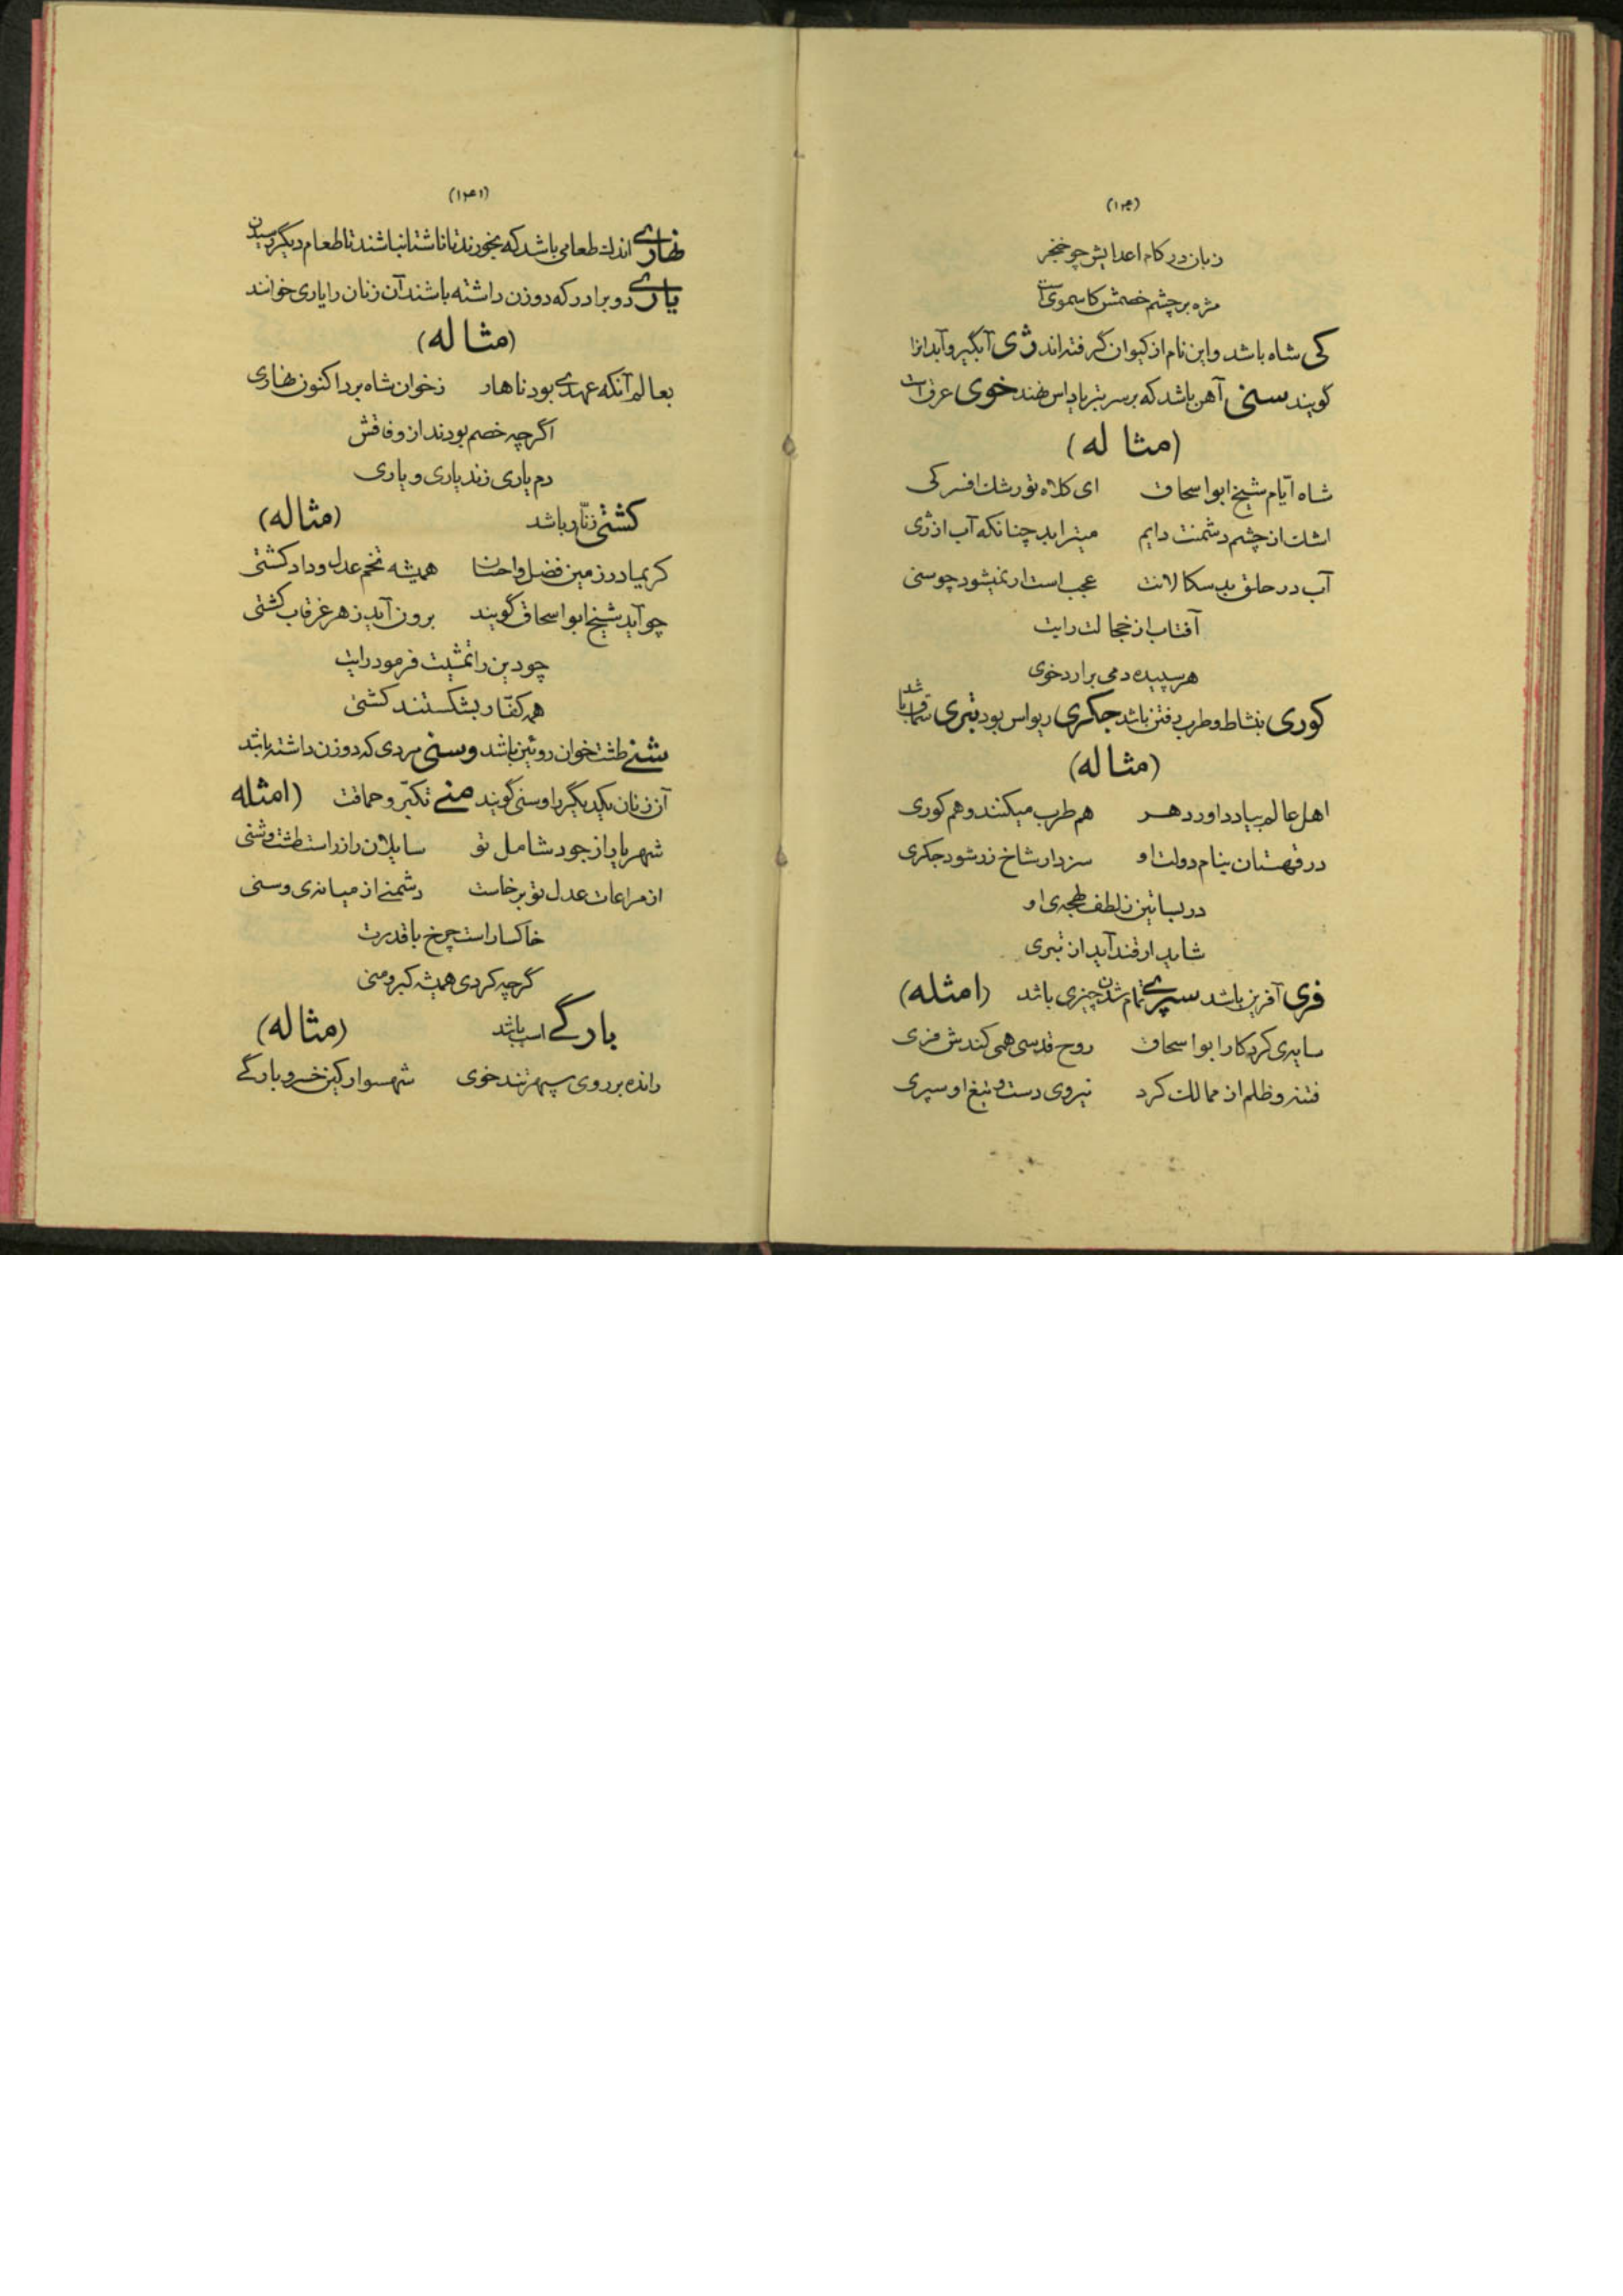 (۱۴۰)
زبان در کام اعدایش چو خنجر
مژه بر چشم خصمش کاسموی است
کی شاه باشد و این نام از کیوان گرفته‌اند ژی آبگیر و آبدانرا
گویند سنی آهن باشد که بر سر تبر یا داس نهند خوی عرق است
(مثاله)
شاه ایّام شیخ ابواسحاق ای کلاه تو رشک افسر کی
اشک از چشم دشمنت دایم میتراید چنانکه آب از ژی
آب در حلق بدسکالانت عجب است ار نمیشود چو سنی
آفتاب از خجالت رایت
هر سپیده دمی برارد خوی
کوری بنشاط و طرب رفتن باشد جکری ریواس بود تبری سماق باشد
(مثاله)
اهل عالم بیاد داور دهر هم طرب میکنند و هم کوری
در قهستان بنام دولت او سزد ار شاخ زر شود جکری
در بساتین ز لطف لهجه‌ی او
شاید ار قند آید از تبری
فری آفرین باشد سپری تمام شدن چیزی باشد (امثله)
سایه‌ی کردکار ابواسحاق روح قدسی همی کندش فری
فتنه و ظلم از ممالک کرد نیروی دست و تیغ او سپری
(۱۴۱)
نهاری اندک طعامی باشد که بخورند تا ناشتا نباشند تا طعام دیگر رسیدن
یاری دو برادر که دو زن داشته باشند آن زنان را یاری خوانند
(مثاله)
بعالم آنکه عهدی بود ناهار ز خوان شاه برد اکنون نهاری
اگرچه خصم بودند از وفاقش
دم یاری زند یاری و یاری
کشتی زنّار باشد (مثاله)
کریما در زمین فضل و احسان همیشه تخم عدل و داد کشتی
چو آید شیخ ابواسحاق گویند برون آید ز هر غرقاب کشتی
چو دین را تمشیت فرمود رایت
همه کفّار بشکستند کشتی
شنی طشت خوان روئین باشد وسنی مردی که دو زن داشته باشد
آن زنان یکدیگر را وسنی گویند منی تکبّر و حماقت (امثله
شهریارا از جود شامل تو سایلان را زر است طشت و شنی
از مراعات عدل تو برخاست دشمنی از میانه‌ی وسنی
خاکسار است چرخ با قدرت
گرچه کردی همیشه کبر و منی
بارگی اسب باشد (مثاله)
رانده بر روی سپهر تند خوی شهسوار کین خسرو بارگی